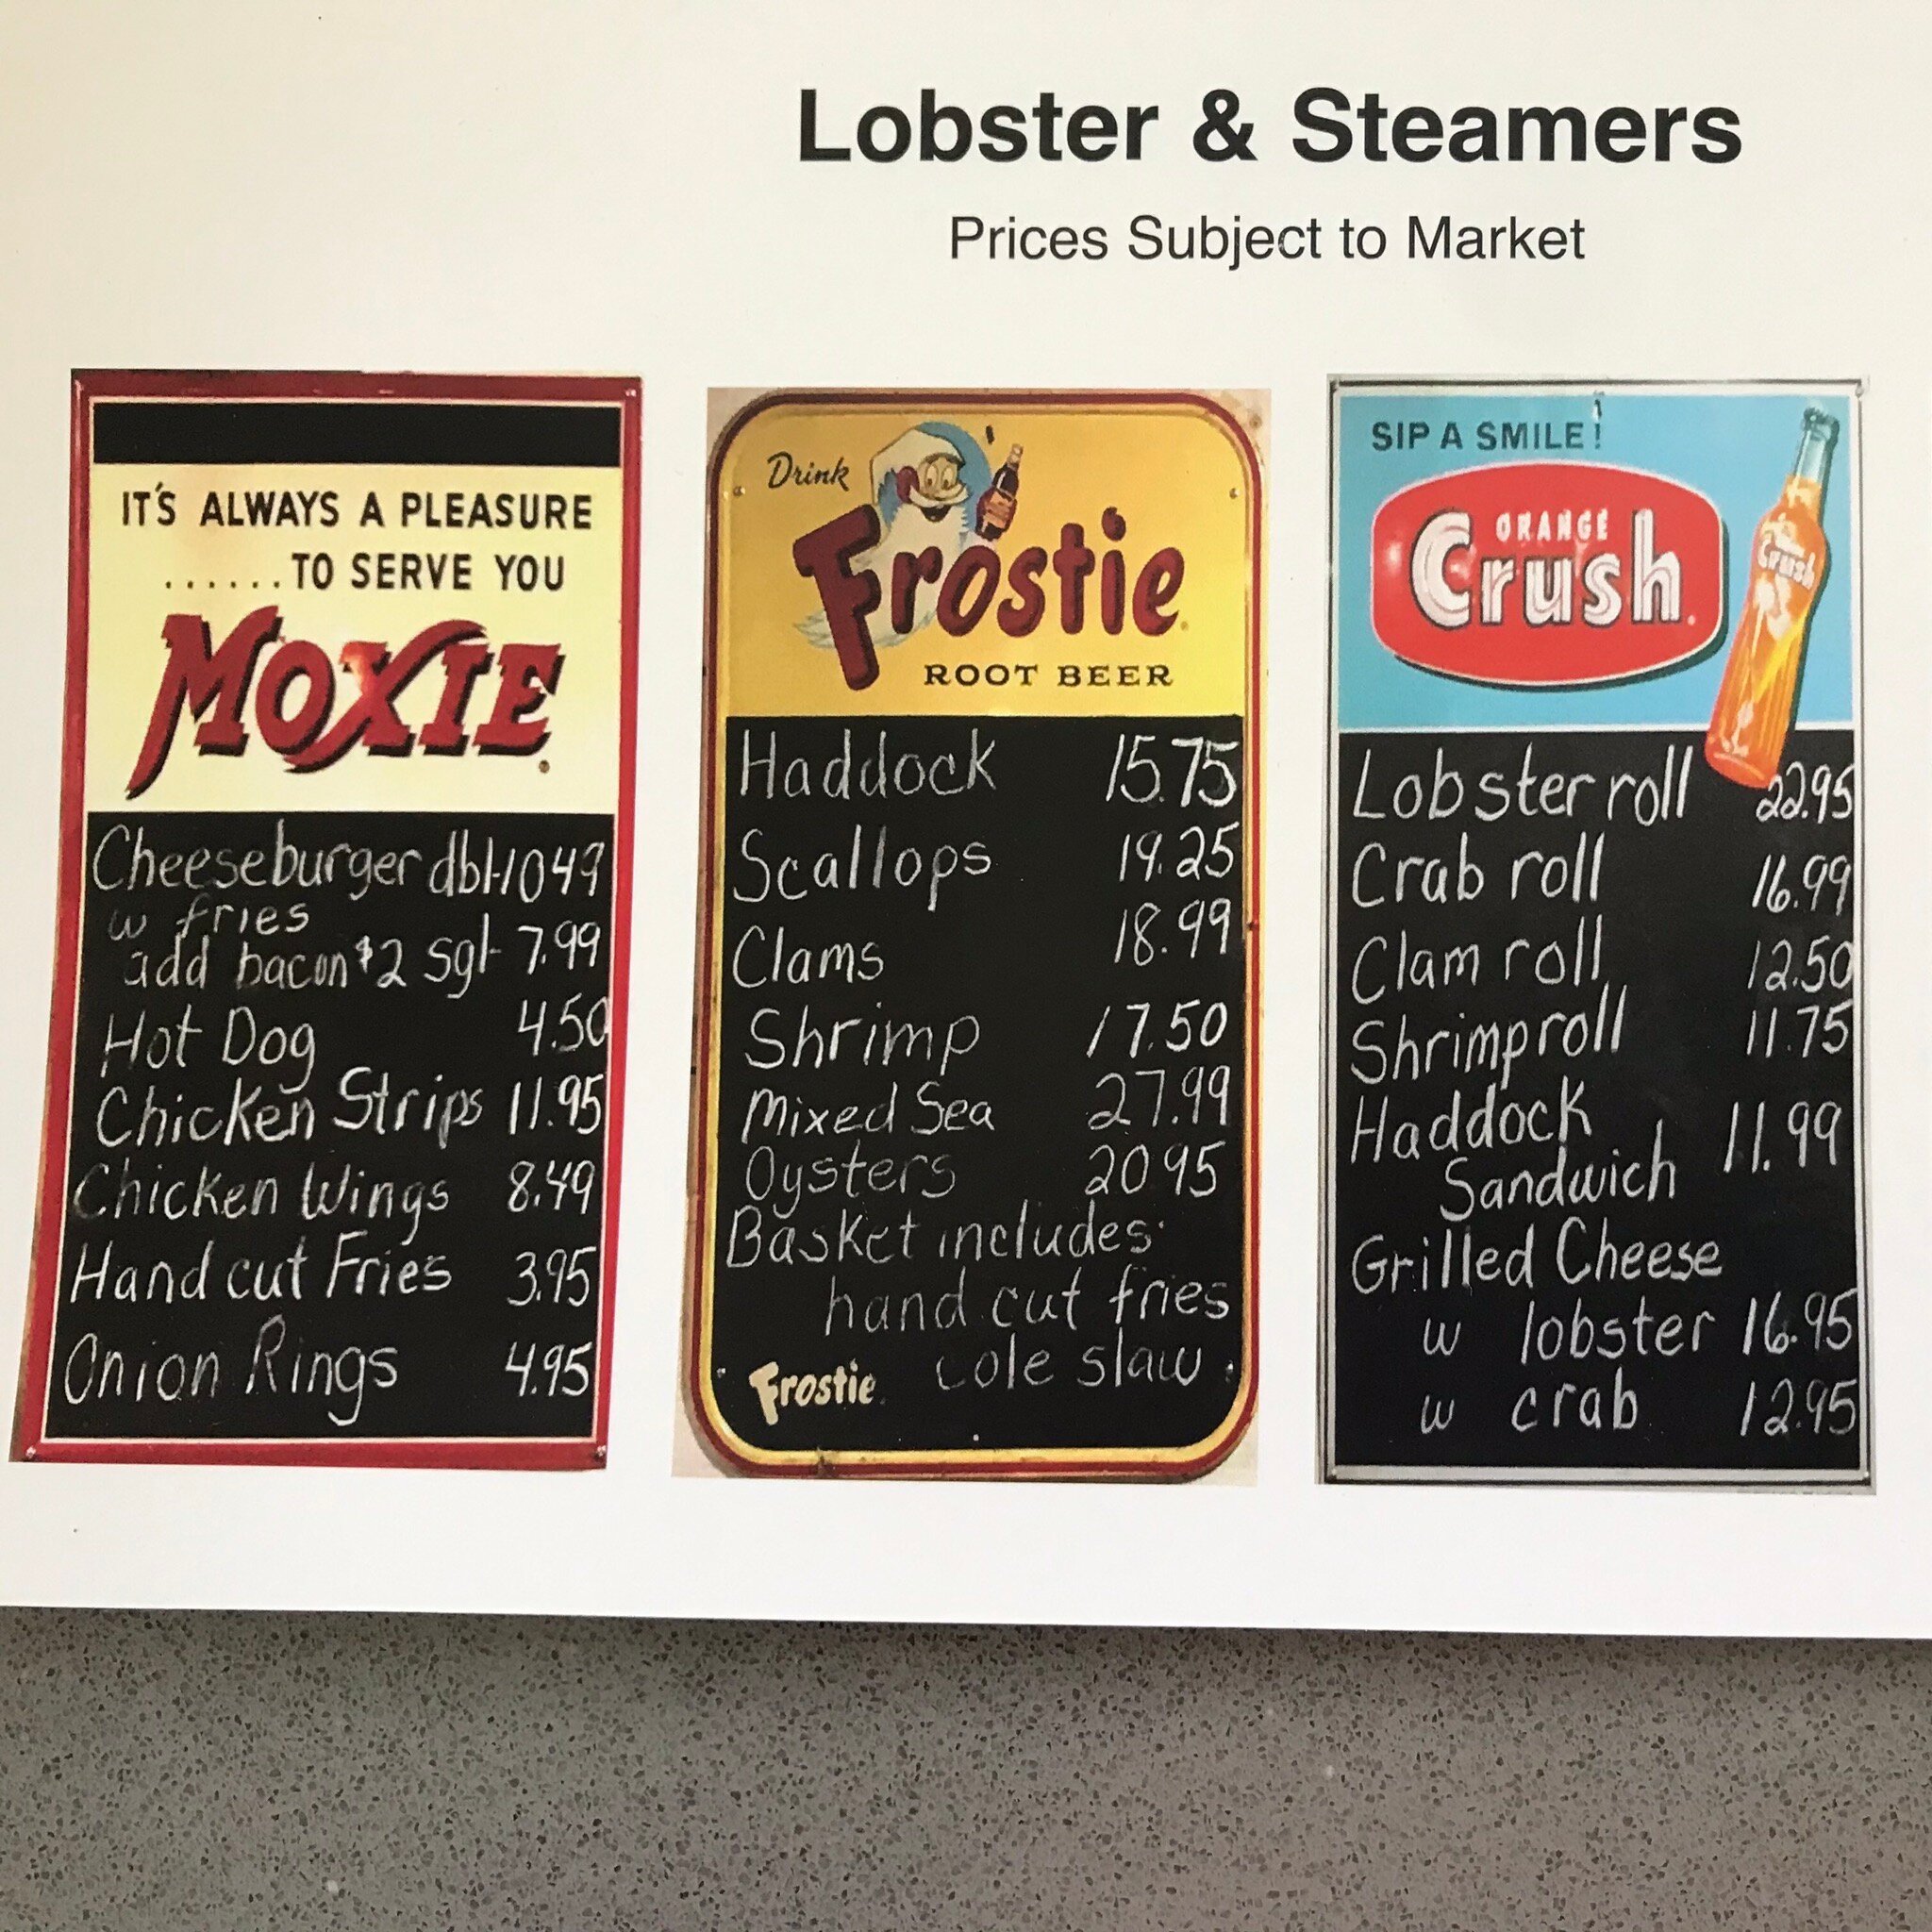 Lobster & Steamers
Prices Subject to Market
IT'S ALWAYS A PLEASURE
......TO SERVE YOU
MOXIE
Cheeseburger dbl-1049
w fries
add bacon $2 sgl- 7.99
Hot Dog 4.50
Chicken Strips 11.95
Chicken Wings 8.49
Hand cut Fries 3.95
Onion Rings 4.95
Drink
Frostie
ROOT BEER
Haddock 15.75
Scallops 19.25
Clams 18.99
Shrimp 17.50
Mixed Sea 27.99
Oysters 2095
Basket includes:
hand cut fries
cole slaw
Frostie
SIP A SMILE!
ORANGE
Crush
Crush
Lobster roll 22.95
Crab roll 16.99
Clam roll 12.50
Shrimp roll 11.75
Haddock 11.99
Sandwich
Grilled Cheese
w lobster 16.95
w crab 12.95